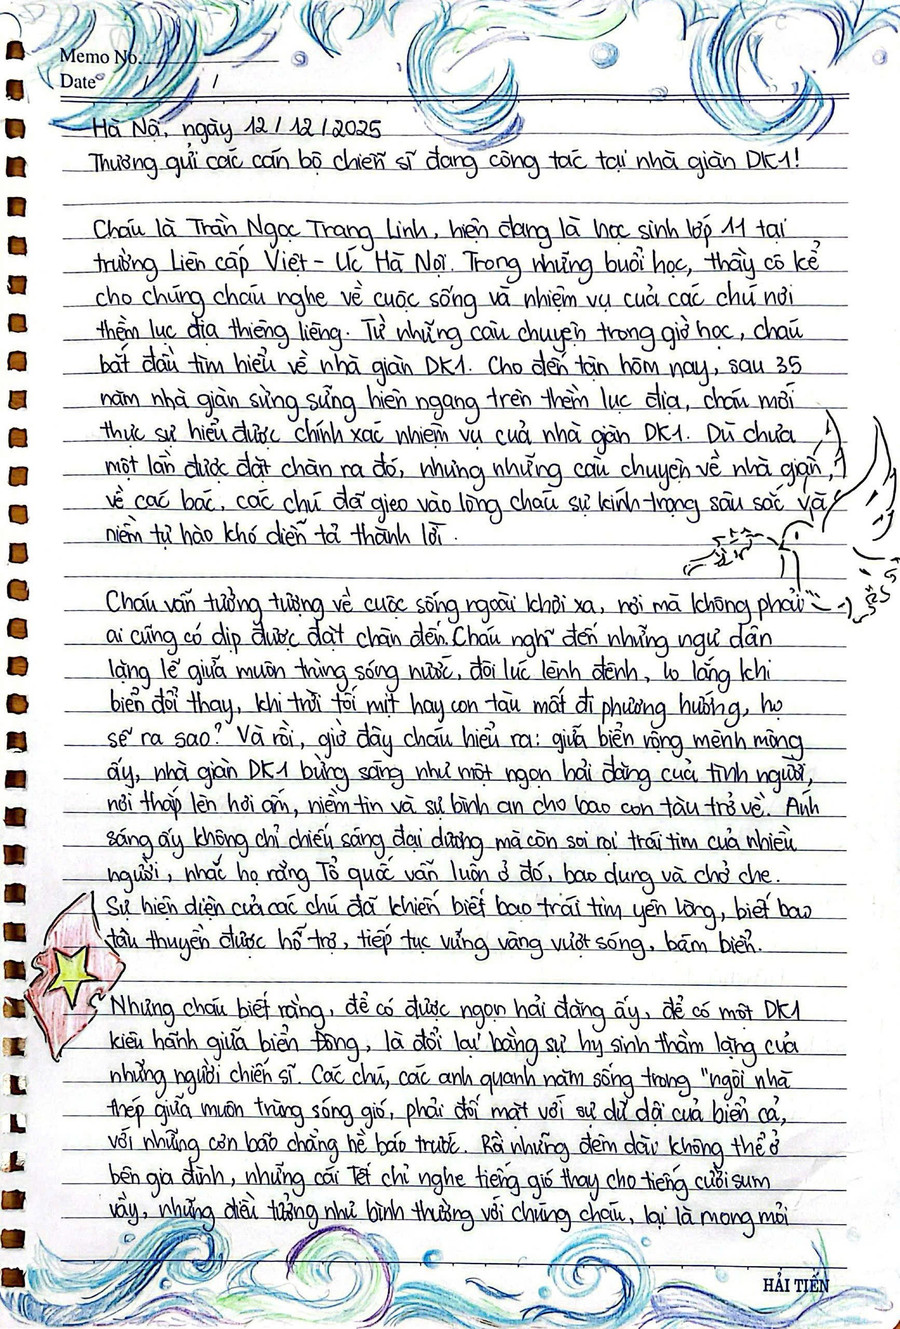 Memo No.
Date / /
Hà Nội, ngày 12/12/2025
Thương gửi các cán bộ chiến sĩ đang công tác tại nhà giàn DK1!
Cháu là Trần Ngọc Trang Linh, hiện đang là học sinh lớp 11 tại
trường Liên cấp Việt - Úc Hà Nội. Trong những buổi học, thầy cô kể
cho chúng cháu nghe về cuộc sống và nhiệm vụ của các chú nơi
thềm lục địa thiêng liêng. Từ những câu chuyện trong giờ học, cháu
bắt đầu tìm hiểu về nhà giàn DK1. Cho đến tận hôm nay, sau 35
năm nhà giàn sừng sững hiên ngang trên thềm lục địa, cháu mới
thực sự hiểu được chính xác nhiệm vụ của nhà giàn DK1. Dù chưa
một lần được đặt chân ra đó, nhưng những câu chuyện về nhà giàn,
về các bác, các chú đã gieo vào lòng cháu sự kính trọng sâu sắc và
niềm tự hào khó diễn tả thành lời.
Cháu vẫn tưởng tượng về cuộc sống ngoài khơi xa, nơi mà không phải
ai cũng có dịp được đặt chân đến. Cháu nghĩ đến những ngư dân
lặng lẽ giữa muôn trùng sóng nước, đôi lúc lênh đênh, lo lắng khi
biển đổi thay, khi trời tối mịt hay con tàu mất đi phương hướng, họ
sẽ ra sao? Và rồi, giờ đây cháu hiểu ra: giữa biển rộng mênh mông
ấy, nhà giàn DK1 bừng sáng như một ngọn hải đăng của tình người,
nơi thắp lên hơi ấm, niềm tin và sự bình an cho bao con tàu trở về. Ánh
sáng ấy không chỉ chiếu sáng đại dương mà còn soi rọi trái tim của nhiều
người, nhắc họ rằng Tổ quốc vẫn luôn ở đó, bao dung và chở che.
Sự hiện diện của các chú đã khiến biết bao trái tim yên lòng, biết bao
tàu thuyền được hỗ trợ, tiếp tục vững vàng vượt sóng, bám biển.
Nhưng cháu biết rằng, để có được ngọn hải đăng ấy, để có một DK1
kiêu hãnh giữa biển Đông, là đổi lại bằng sự hy sinh thầm lặng của
những người chiến sĩ. Các chú, các anh quanh năm sống trong "ngôi nhà
thép giữa muôn trùng sóng gió, phải đối mặt với sự dữ dội của biển cả,
với những cơn bão chẳng hề báo trước. Rồi những đêm dài không thể ở
bên gia đình, những cái Tết chỉ nghe tiếng gió thay cho tiếng cười sum
vầy, những điều tưởng như bình thường với chúng cháu, lại là mong mỏi
HẢI TIẾN